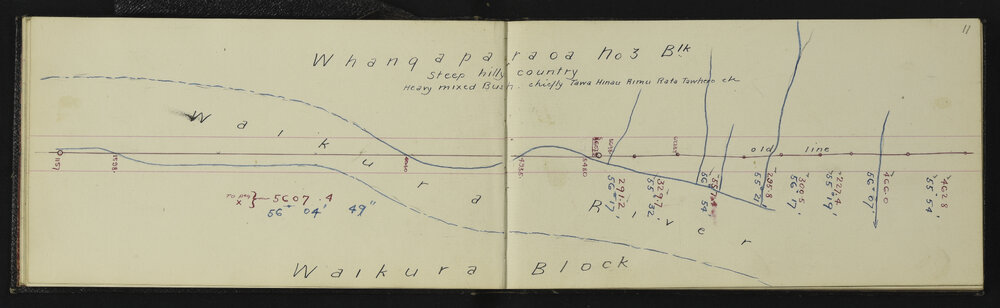 11
Whangaparaoa No 3 Blk
Steep hilly country
Heavy mixed Bush. chiefly Tawa Hinau Rimu Rata Tawhero etc
Waikura
River
old line
5607.4
56° 04' 49"
291.2
56° 17'
329.7
55° 32'
295.8
55° 21'
300.5
56° 17'
227.4
55° 19'
400.0
56° 07'
402.8
55° 54'
Waikura Block